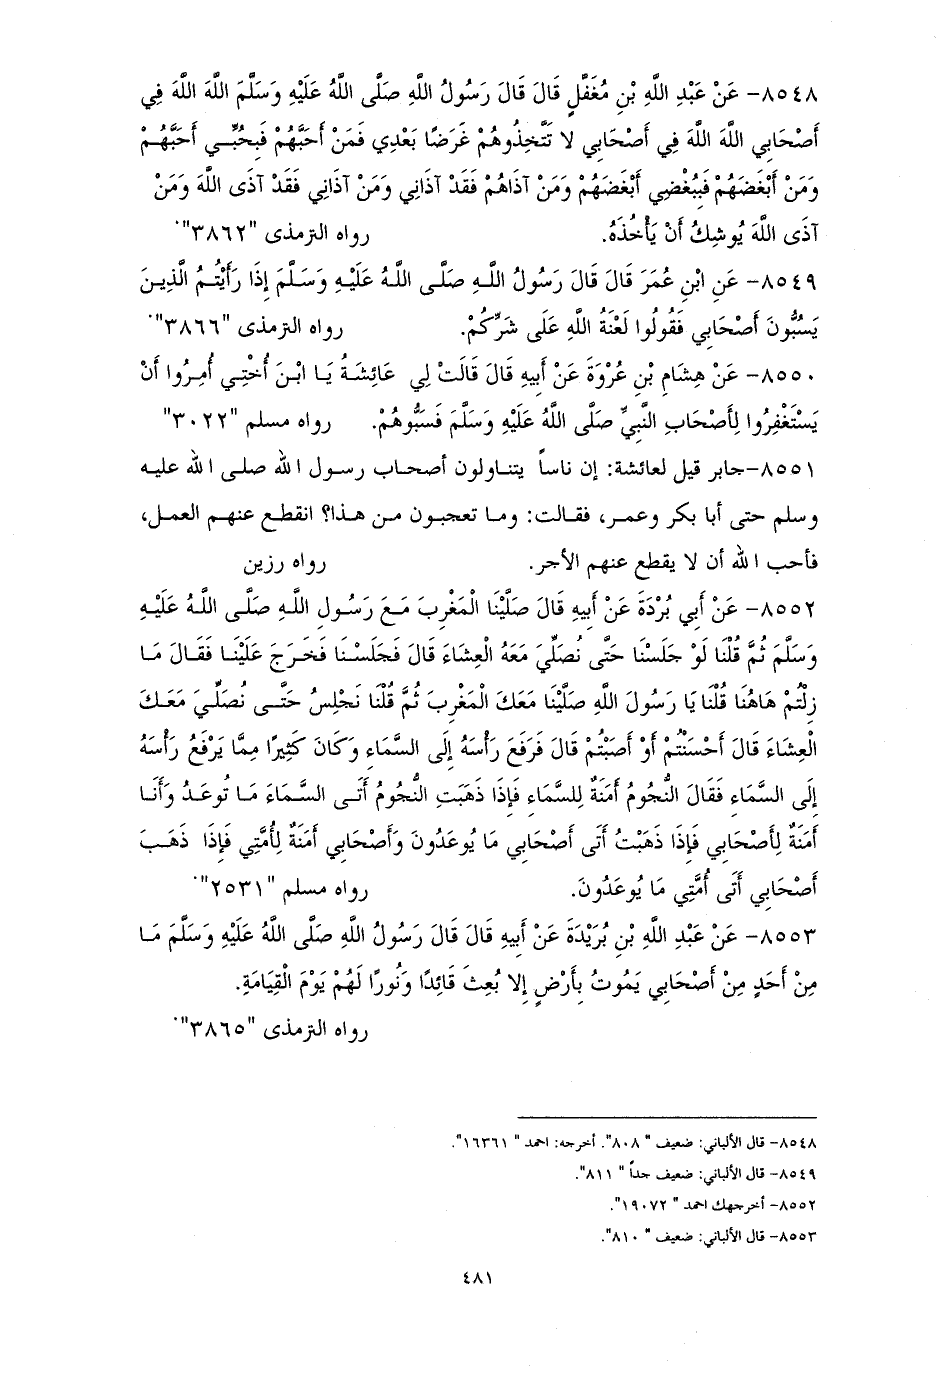 ٨٥٤٨- عَنْ عَبْدِ اللَّهِ بْنِ مُغَفَّلٍ قَالَ قَالَ رَسُولُ اللَّهِ صَلَّى اللَّهُ عَلَيْهِ وَسَلَّمَ اللَّهَ اللَّهَ فِي
أَصْحَابِي اللَّهَ اللَّهَ فِي أَصْحَابِي لا تَتَّخِذُوهُمْ غَرَضًا بَعْدِي فَمَنْ أَحَبَّهُمْ فَبِحُبِّي أَحَبَّهُمْ
وَمَنْ أَبْغَضَهُمْ فَبِبُغْضِي أَبْغَضَهُمْ وَمَنْ آذَاهُمْ فَقَدْ آذَانِي وَمَنْ آذَانِي فَقَدْ آذَى اللَّهَ وَمَنْ
آذَى اللَّهَ يُوشِكُ أَنْ يَأْخُذَهُ. رواه الترمذى "٣٨٦٢".
٨٥٤٩- عَنِ ابْنِ عُمَرَ قَالَ قَالَ رَسُولُ اللَّهِ صَلَّى اللَّهُ عَلَيْهِ وَسَلَّمَ إِذَا رَأَيْتُمُ الَّذِينَ
يَسُبُّونَ أَصْحَابِي فَقُولُوا لَعْنَةُ اللَّهِ عَلَى شَرِّكُمْ. رواه الترمذى "٣٨٦٦".
٨٥٥٠- عَنْ هِشَامِ بْنِ عُرْوَةَ عَنْ أَبِيهِ قَالَ قَالَتْ لِي عَائِشَةُ يَا ابْنَ أُخْتِي أُمِرُوا أَنْ
يَسْتَغْفِرُوا لِأَصْحَابِ النَّبِيِّ صَلَّى اللَّهُ عَلَيْهِ وَسَلَّمَ فَسَبُّوهُمْ. رواه مسلم "٣٠٢٢"
٨٥٥١-جابر قيل لعائشة: إن ناساً يتناولون أصحاب رسول الله صلى الله عليه
وسلم حتى أبا بكر وعمر، فقالت: وما تعجبون من هذا؟ انقطع عنهم العمل،
فأحب الله أن لا يقطع عنهم الأجر. رواه رزين
٨٥٥٢- عَنْ أَبِي بُرْدَةَ عَنْ أَبِيهِ قَالَ صَلَّيْنَا الْمَغْرِبَ مَعَ رَسُولِ اللَّهِ صَلَّى اللَّهُ عَلَيْهِ
وَسَلَّمَ ثُمَّ قُلْنَا لَوْ جَلَسْنَا حَتَّى نُصَلِّيَ مَعَهُ الْعِشَاءَ قَالَ فَجَلَسْنَا فَخَرَجَ عَلَيْنَا فَقَالَ مَا
زِلْتُمْ هَاهُنَا قُلْنَا يَا رَسُولَ اللَّهِ صَلَّيْنَا مَعَكَ الْمَغْرِبَ ثُمَّ قُلْنَا نَجْلِسُ حَتَّى نُصَلِّيَ مَعَكَ
الْعِشَاءَ قَالَ أَحْسَنْتُمْ أَوْ أَصَبْتُمْ قَالَ فَرَفَعَ رَأْسَهُ إِلَى السَّمَاءِ وَكَانَ كَثِيرًا مِمَّا يَرْفَعُ رَأْسَهُ
إِلَى السَّمَاءِ فَقَالَ النُّجُومُ أَمَنَةٌ لِلسَّمَاءِ فَإِذَا ذَهَبَتِ النُّجُومُ أَتَى السَّمَاءَ مَا تُوعَدُ وَأَنَا
أَمَنَةٌ لِأَصْحَابِي فَإِذَا ذَهَبْتُ أَتَى أَصْحَابِي مَا يُوعَدُونَ وَأَصْحَابِي أَمَنَةٌ لِأُمَّتِي فَإِذَا ذَهَبَ
أَصْحَابِي أَتَى أُمَّتِي مَا يُوعَدُونَ. رواه مسلم "٢٥٣١".
٨٥٥٣- عَنْ عَبْدِ اللَّهِ بْنِ بُرَيْدَةَ عَنْ أَبِيهِ قَالَ قَالَ رَسُولُ اللَّهِ صَلَّى اللَّهُ عَلَيْهِ وَسَلَّمَ مَا
مِنْ أَحَدٍ مِنْ أَصْحَابِي يَمُوتُ بِأَرْضٍ إِلا بُعِثَ قَائِدًا وَنُورًا لَهُمْ يَوْمَ الْقِيَامَةِ.
رواه الترمذى "٣٨٦٥".
٨٥٤٨- قال الألباني: ضعيف "٨٠٨". أخرجه: احمد "١٦٣٦١".
٨٥٤٩- قال الألباني: ضعيف جداً "٨١١".
٨٥٥٢- أخرجهك احمد "١٩٠٧٢".
٨٥٥٣- قال الألباني: ضعيف "٨١٠".
٤٨١